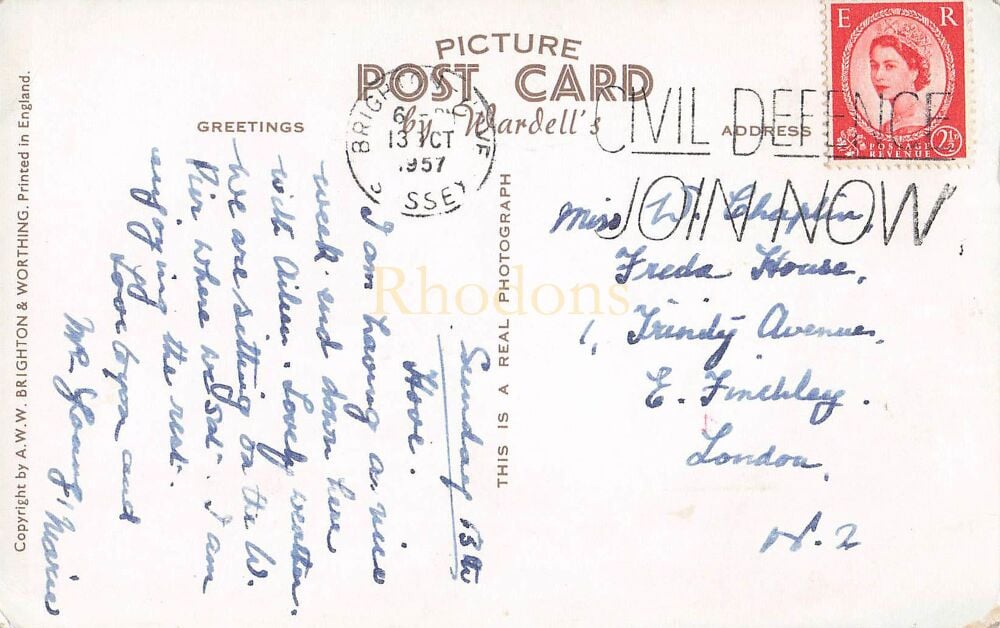 PICTURE
POST CARD
by Wardell's
GREETINGS
ADDRESS
E R
POSTAGE
REVENUE
2½D
BRIGHTON
13 OCT
1957
SSEX
CIVIL DEFENCE
JOIN NOW
Copyright by A.W.W. BRIGHTON & WORTHING. Printed in England.
THIS IS A REAL PHOTOGRAPH
Rhodons
Sunday 13th
Hove.
I am having a nice
week-end down here
with Aileen. Lovely weather.
We are sitting on the W.
Pier where we sat. I am
enjoying the rest.
Love to you and
Marie
Miss W. Chaplin,
Freda House,
1, Trinity Avenue,
E. Finchley.
London,
N. 2